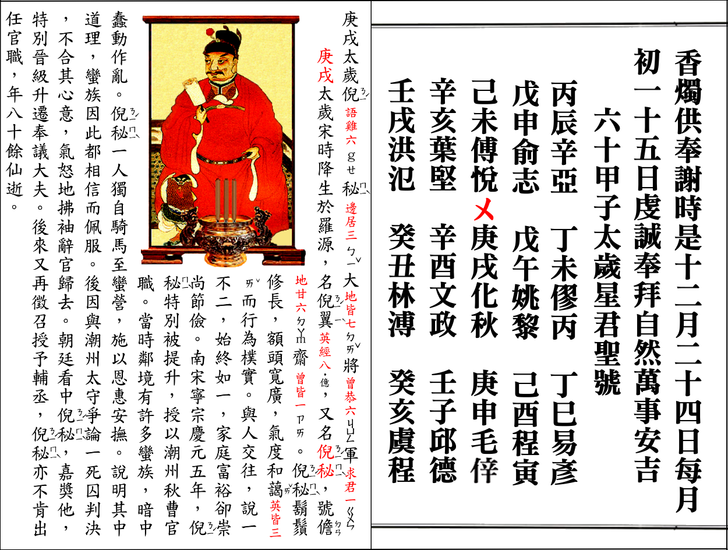 香燭供奉謝時是十二月二十四日每月
初一十五日虔誠奉拜自然萬事安吉
六十甲子太歲星君聖號
丙辰辛亞 丁未僇丙 丁巳易彥
戊申俞志 戊午姚黎 己酉程寅
己未傅悅ㄨ庚戌化秋 庚申毛倖
辛亥葉堅 辛酉文政 壬子邱德
壬戌洪氾 癸丑林溥 癸亥虞程
庚戌太歲倪語雞六ㄍㄝ秘邊居三ㄅㄧˇ大地皆七ㄉㄞˇ將曾恭六軍求君一
庚戌太歲宋時降生於羅源，名倪翼英經八.億，又名倪秘，號儋
地甘六齋曾皆一ㄗㄞ。倪秘鬚鬢
修長，額頭寬廣，氣度和藹英皆三
ㄞˇ而行為樸實。與人交往，說一
不二，始終如一，家庭富裕卻崇
尚節儉。南宋寧宗慶元五年，倪
秘特別被提升，授以潮州秋曹官
職。當時鄰境有許多蠻族，暗中
蠢動作亂。倪秘一人獨自騎馬至蠻營，施以恩惠安撫。說明其中
道理，蠻族因此都相信而佩服。後因與潮州太守爭論一死囚判決
，不合其心意，氣怒地拂袖辭官歸去。朝廷看中倪秘，嘉獎他，
特別晉級升遷奉議大夫。後來又再徵召授予輔丞，倪秘亦不肯出
任官職，年八十餘仙逝。